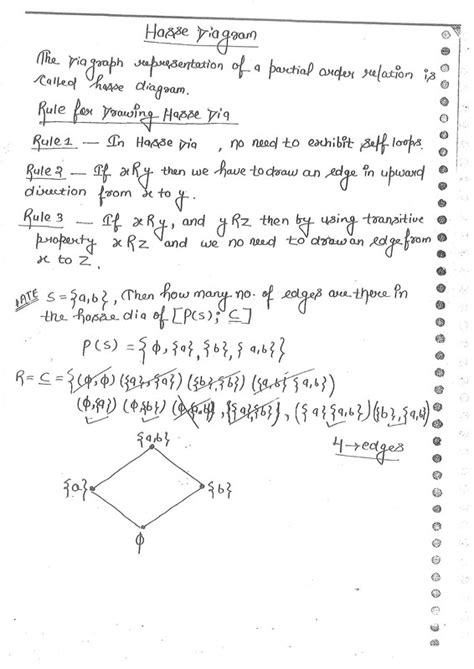 Hasse Diagram
The Diagraph representation of a partial order relation is
called hasse diagram.
Rule for Drawing Hasse Dia
Rule 1 — In Hasse Dia , no need to exhibit self loops.
Rule 2 — If xRy then we have to draw an edge in upward
direction from x to y.
Rule 3 — If xRy, and yRz then by using transitive
property xRz and we no need to draw an edge from
x to z.
S = {a,b}, Then how many no. of edges are there in
the hasse dia of [P(S); ⊆]
P(S) = {ϕ, {a}, {b}, {a,b}}
R = ⊆ = {(ϕ,ϕ) ({a},{a}) ({b},{b}) ({a,b} {a,b})
(ϕ,{a}) (ϕ,{b}) , ({a}{a,b}) ({b},{a,b})
4 → edges
{a,b}
{a} {b}
ϕ